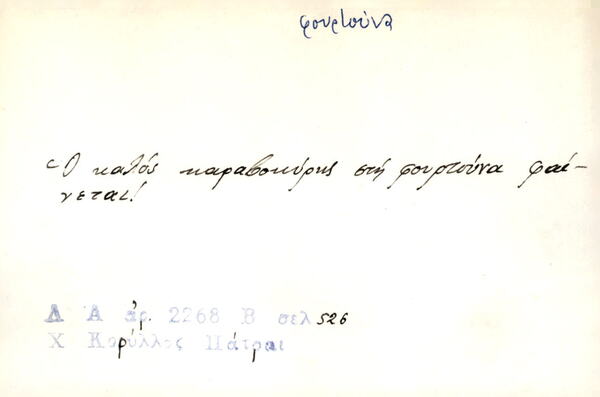 φουρτούνα
Ὁ καλός καραβοκύρης στή φουρτούνα φαί-
νεται!
Λ Α ἀρ. 2268 Β σελ 526
Χ Κορύλλος Πάτραι